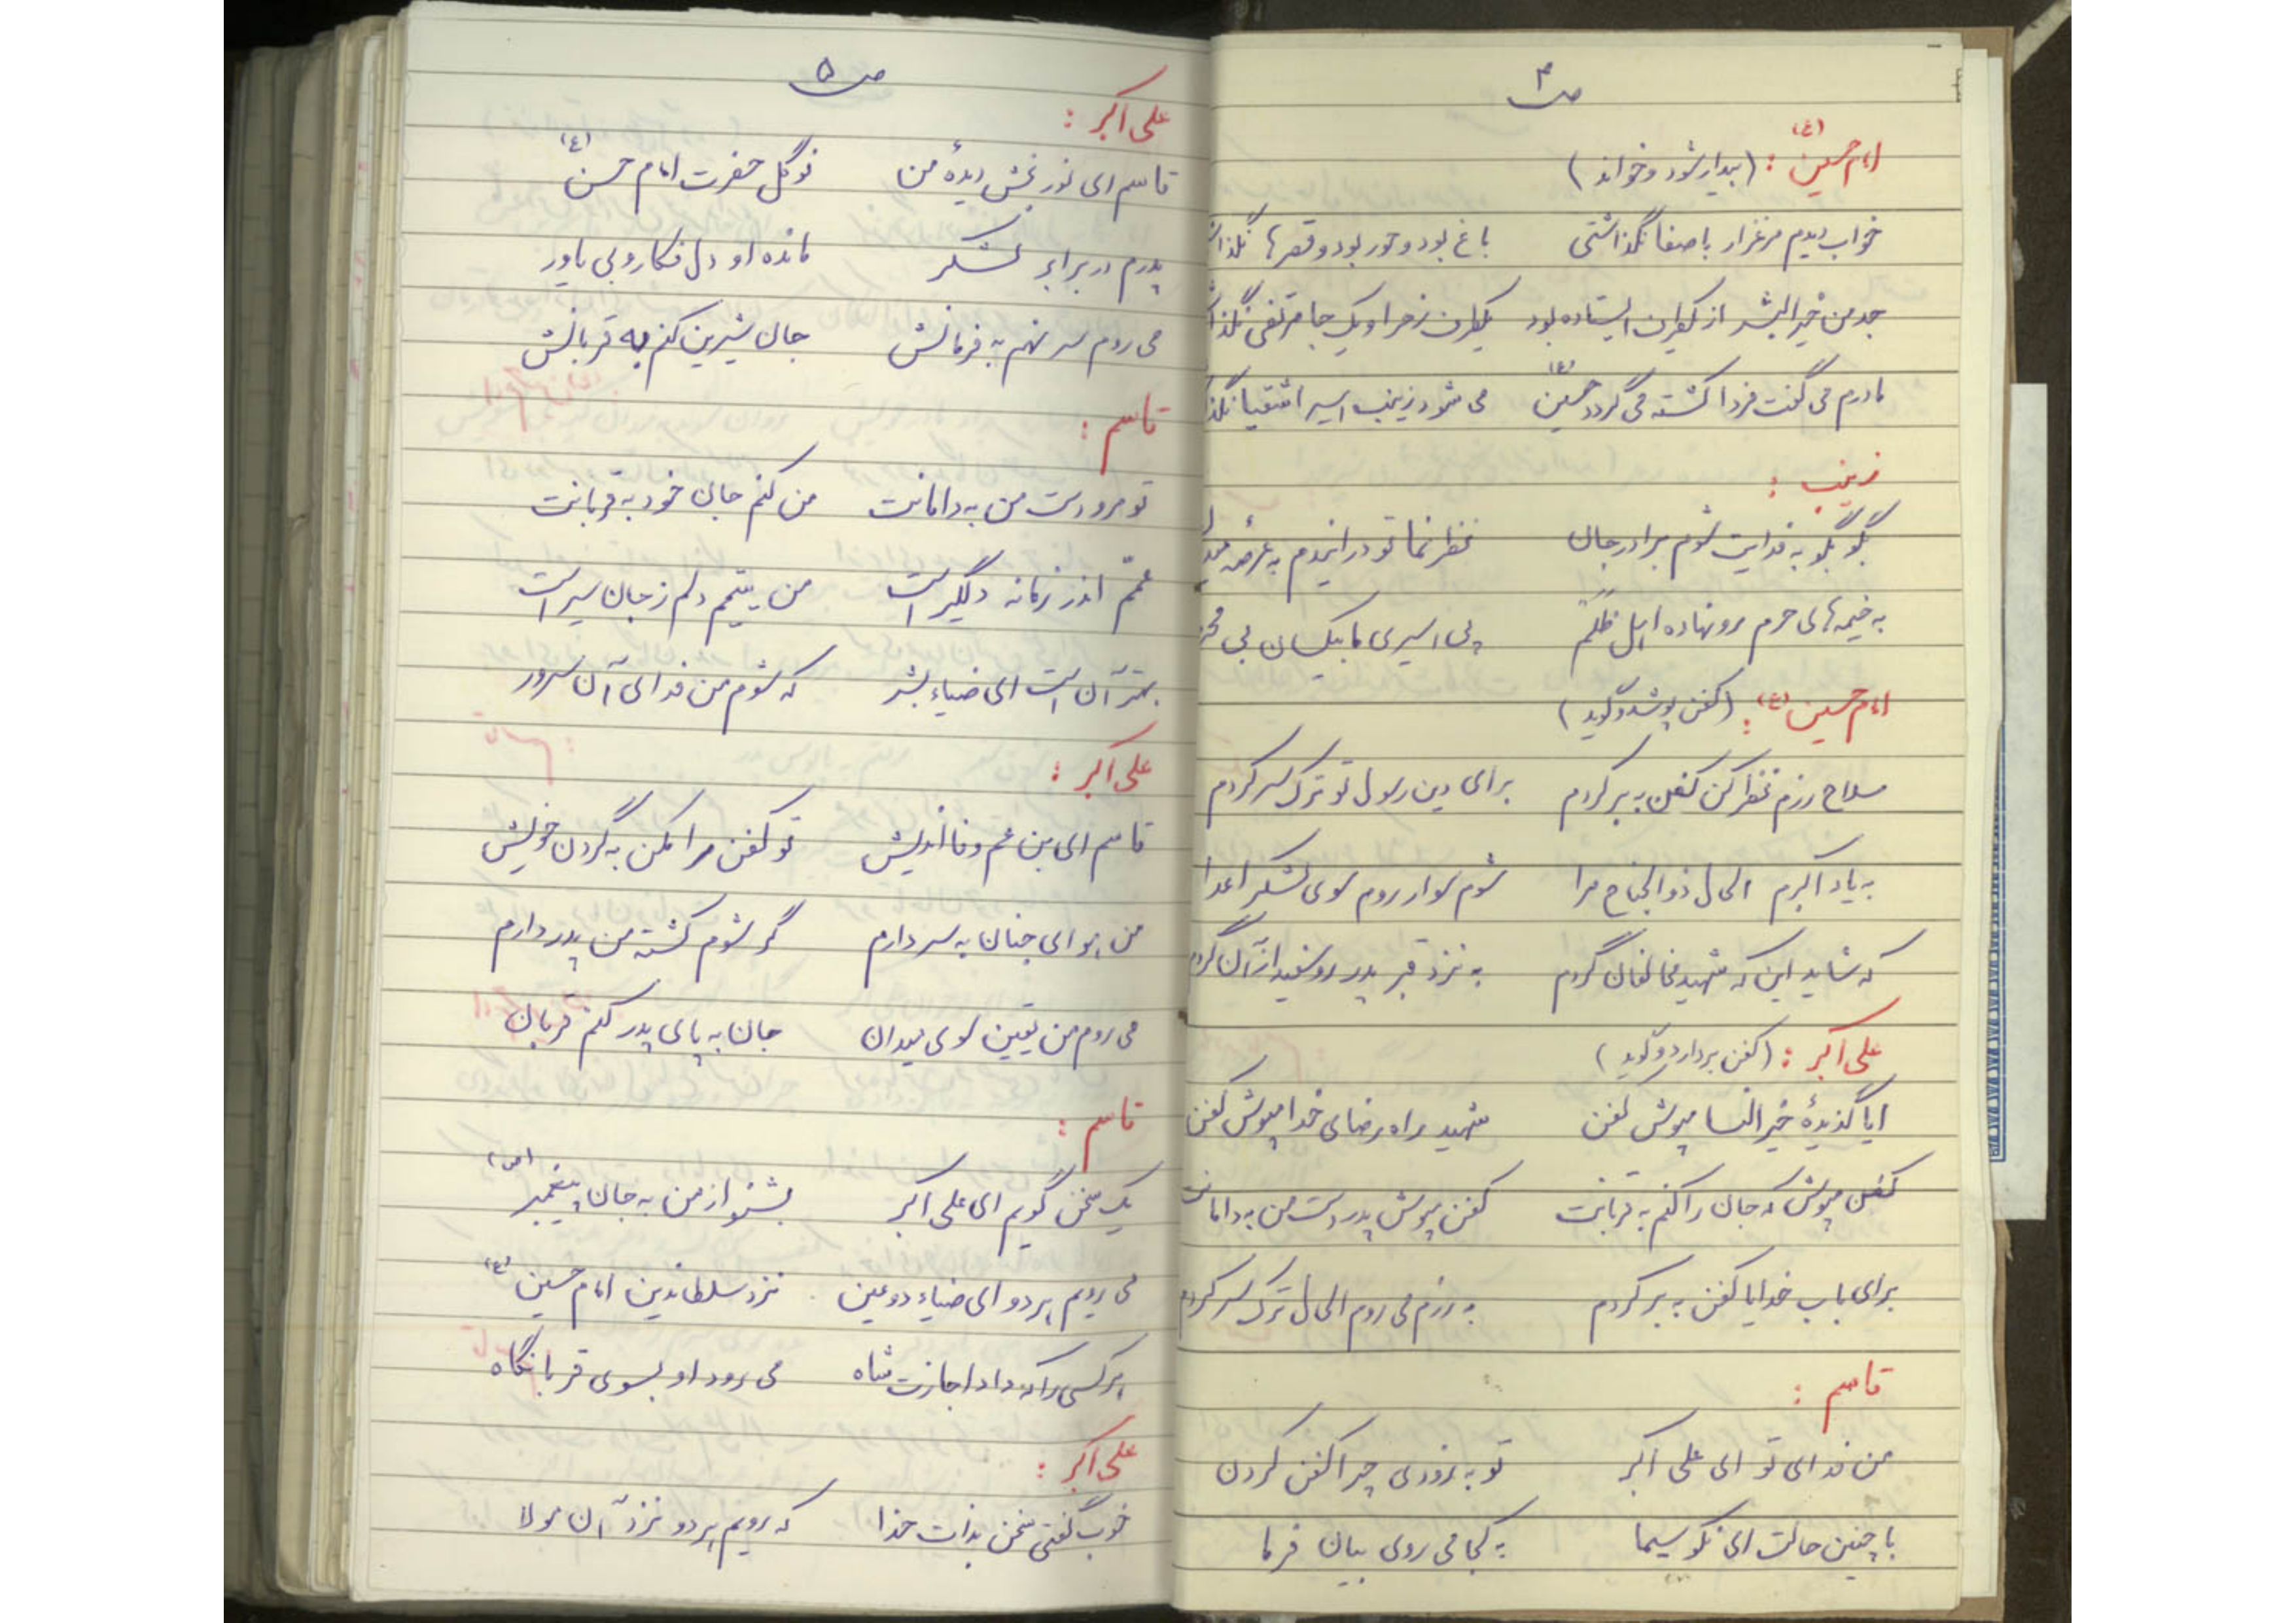 ص ۴
امام حسین (ع) : (بیدار شود و خواند)
خواب دیدم مرغزار باصفا نگذاشتی باغ بود و حور بود و قصرها
جد من خیرالبشر از یکطرف ایستاده بود یکطرف زهرا و یک جا مرتضی
مادرم می گفت فردا کشته می گردد حسین (ع) می شود زینب اسیر اشقیا
زینب :
بگو بگو به فدایت شوم برادر جان نظر نما تو در ایندم به عرصه
به خیمه های حرم رو نهاده اهل ظلم پی اسیری ما بیکسان بی
امام حسین (ع) : (کفن پوشد و گوید)
سلاح رزم نظر کن کفن به بر کردم برای دین رسول تو ترک سر کردم
به یاد اکبرم الحال ذوالجناح مرا شوم سوار روم سوی لشکر اعدا
که شاید این که شهید مخالفان گردم به نزد قبر پدر رو سفید از آن گردم
علی اکبر : (کفن بردارد و گوید)
ایا گذیدهٔ خیر النسا مپوش کفن شهید راه رضای خدا مپوش کفن
کفن مپوش که جان را کنم به قربانت کفن مپوش پدر دست من به دامانت
برای باب خدایا کفن به بر کردم به رزم می روم الحال ترک سر کردم
قاسم :
من فدای تو ای علی اکبر تو به زودی چرا کفن کردن
با چنین حالت ای نکو سیما به کجا می روی بیان فرما
ص ۵
علی اکبر :
قاسم ای نور بخش دیدهٔ من نوگل حضرت امام حسن (ع)
پدرم در برابر لشکر مانده او دل فکار و بی یاور
می روم سر نهم به فرمانش جان شیرین کنم به قربانش
قاسم :
تو مرو دست من به دامانت من کنم جان خود به قربانت
عمّم اندر زمانه دلگیر است من یتیمم دلم ز جان سیر است
بهتر آن است ای ضیاء بشر که شوم من فدای آن سرور
علی اکبر :
قاسم ای بن عم وفا اندیش تو کفن مرا مکن به گردن خویش
من هوای جنان به سر دارم گر شوم کشته من پدر دارم
می روم من یقین سوی میدان جان به پای پدر کنم قربان
قاسم :
یک سخن گویم ای علی اکبر بشنو از من به جان پیغمبر (ص)
می رویم هر دو ای ضیاء دو عین نزد سلطاندین امام حسین (ع)
هر کسی را که داد اجازت شاه می رود او بسوی قربانگاه
علی اکبر :
خوب گفتی سخن بذات خدا که رویم هر دو نزد آن مولا